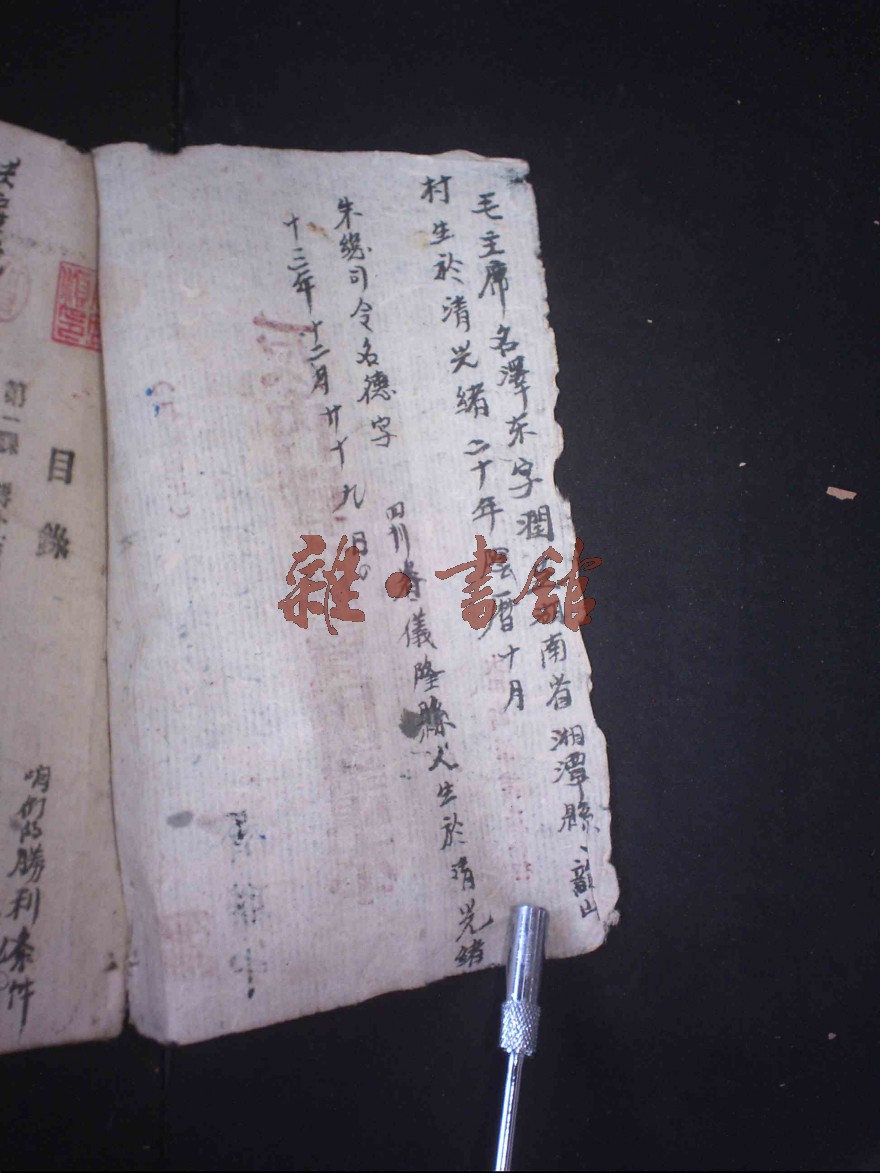 毛主席名澤东字潤 湖南省湘潭縣、韶山
村生於清光緒二十年 暦十月
朱總司令名德字 四川省儀隆縣人生於清光緒
十二年十二月廿十九日
目錄
第一課
咱们的勝利条件
雜·書館